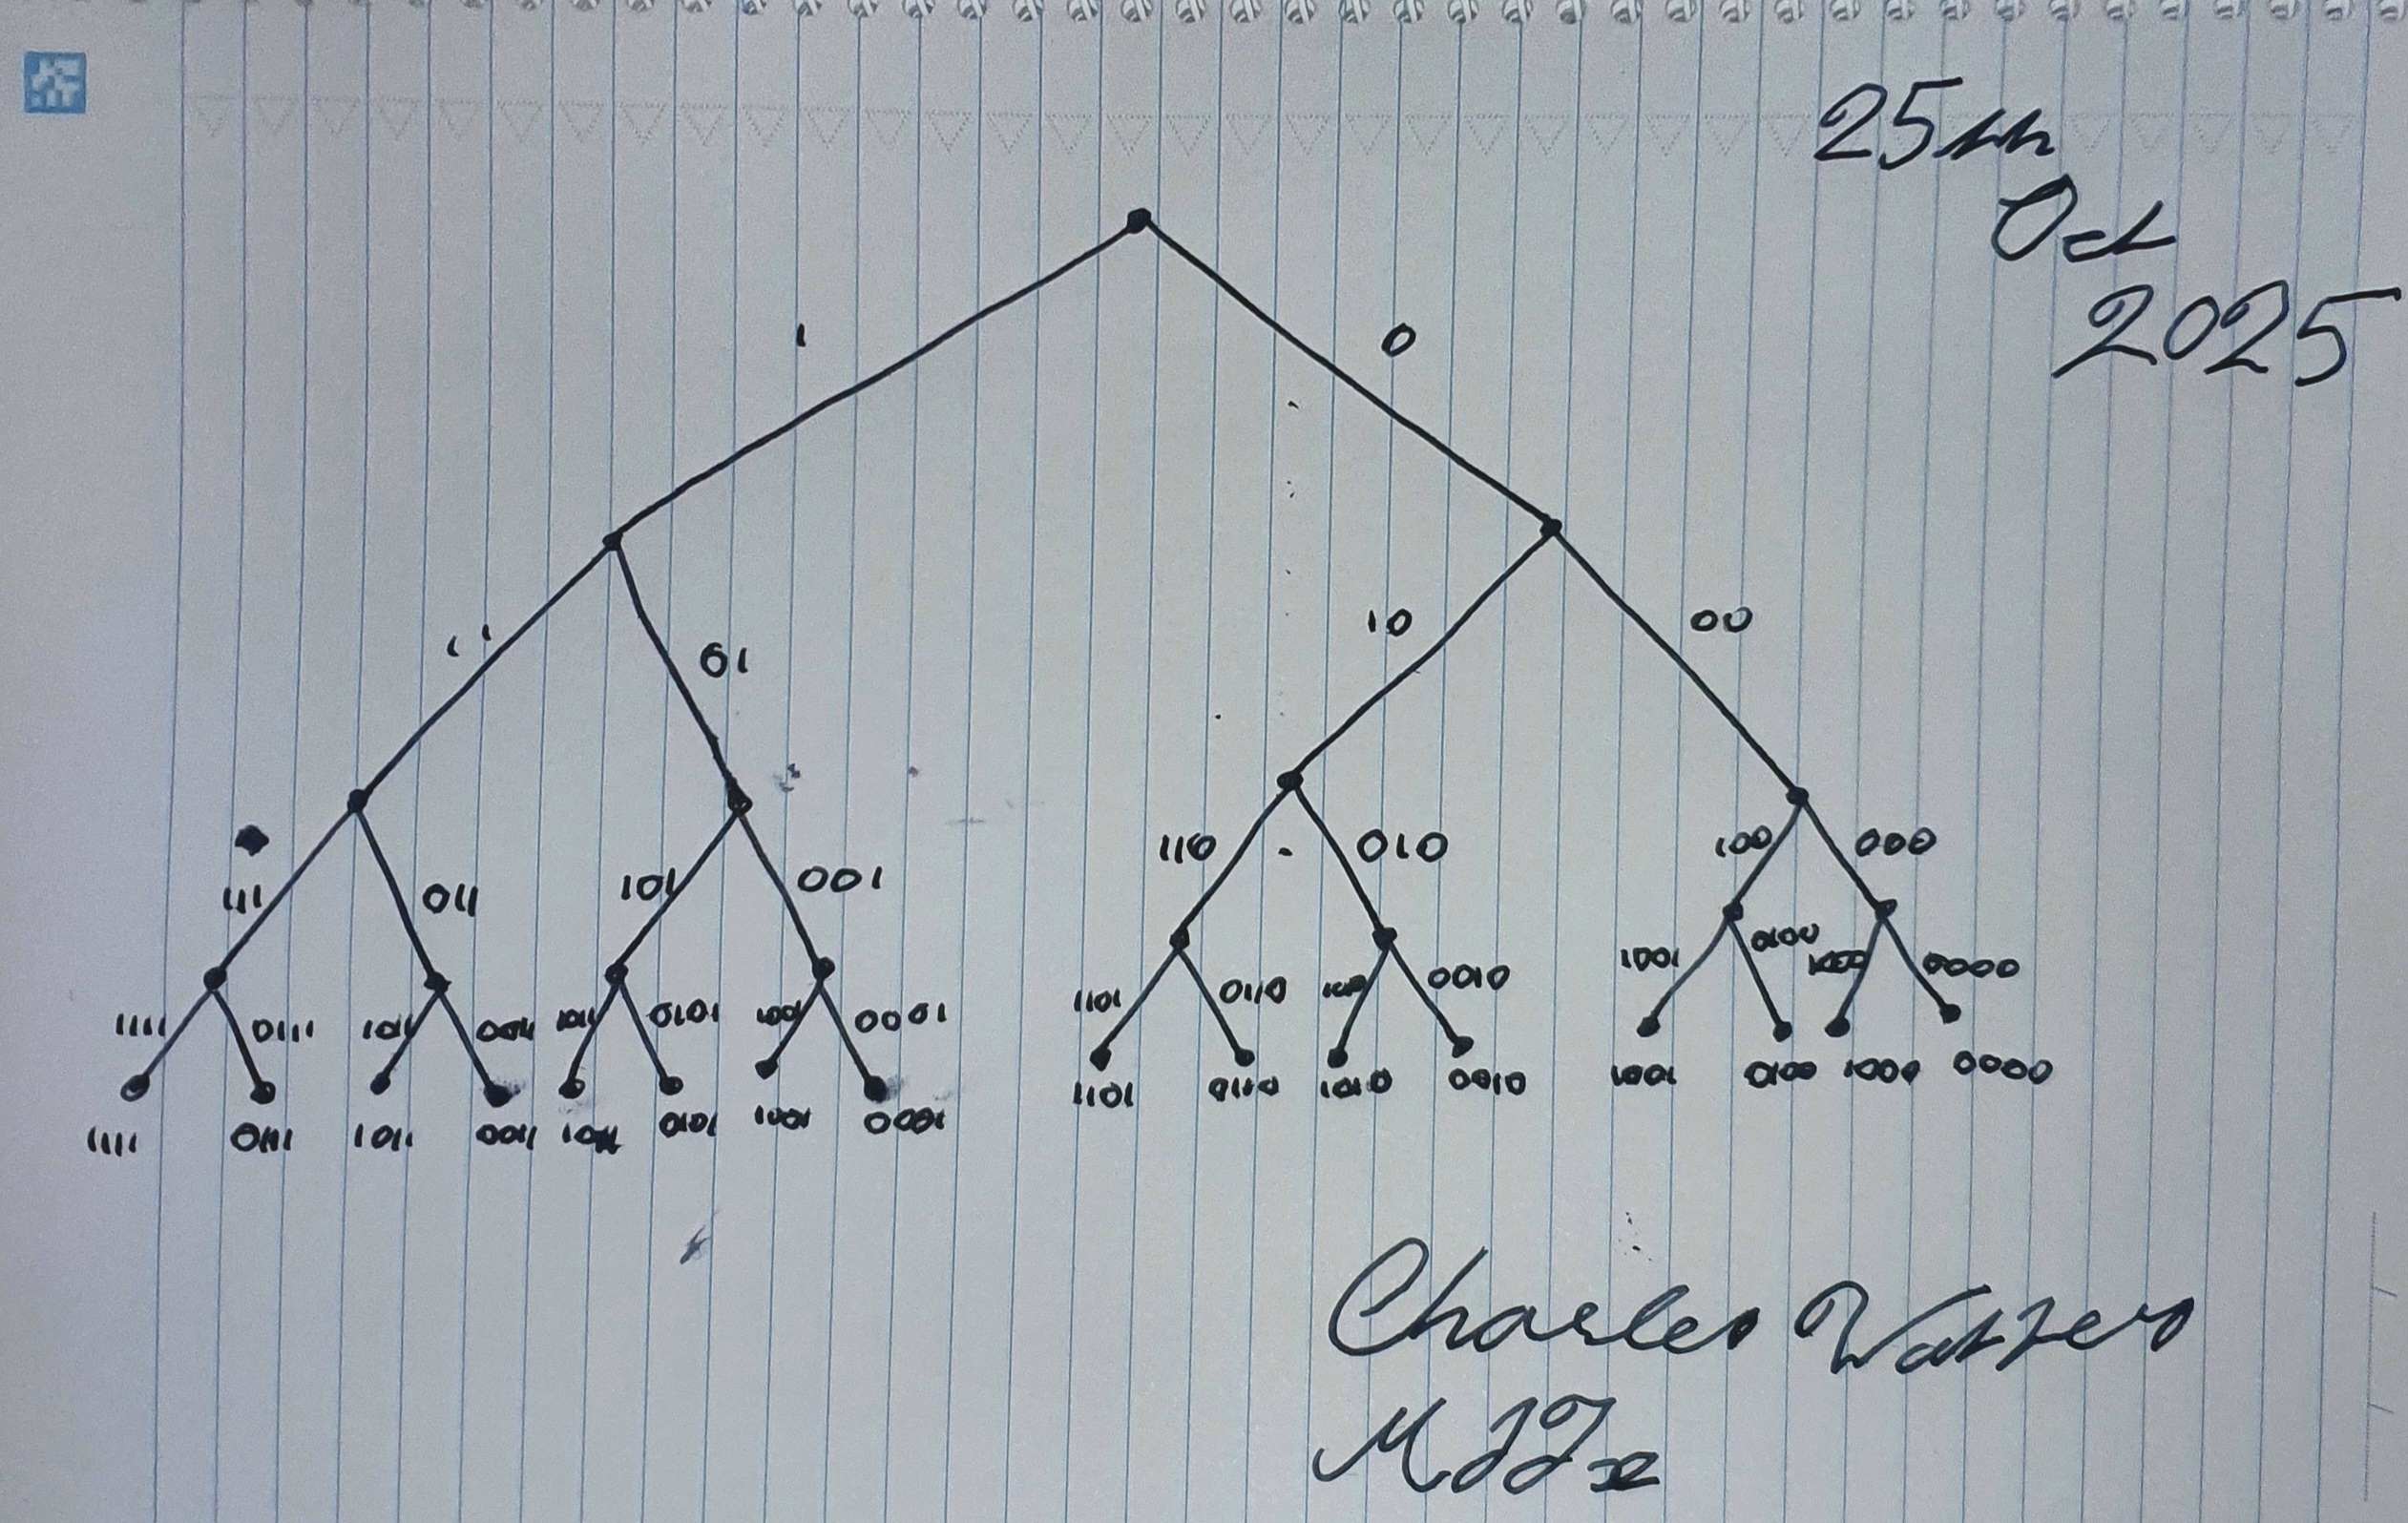 25th
Oct
2025
1 0
11 01 10 00
111 011 101 001 110 010 100 000
1111 0111 1011 0011 0101 1001 0001 1101 0110 0010 1001 0100 1000 0000
1111 0111 1011 0011 0101 1001 0001 1101 0110 1010 0010 1001 0100 1000 0000
Charles Watters